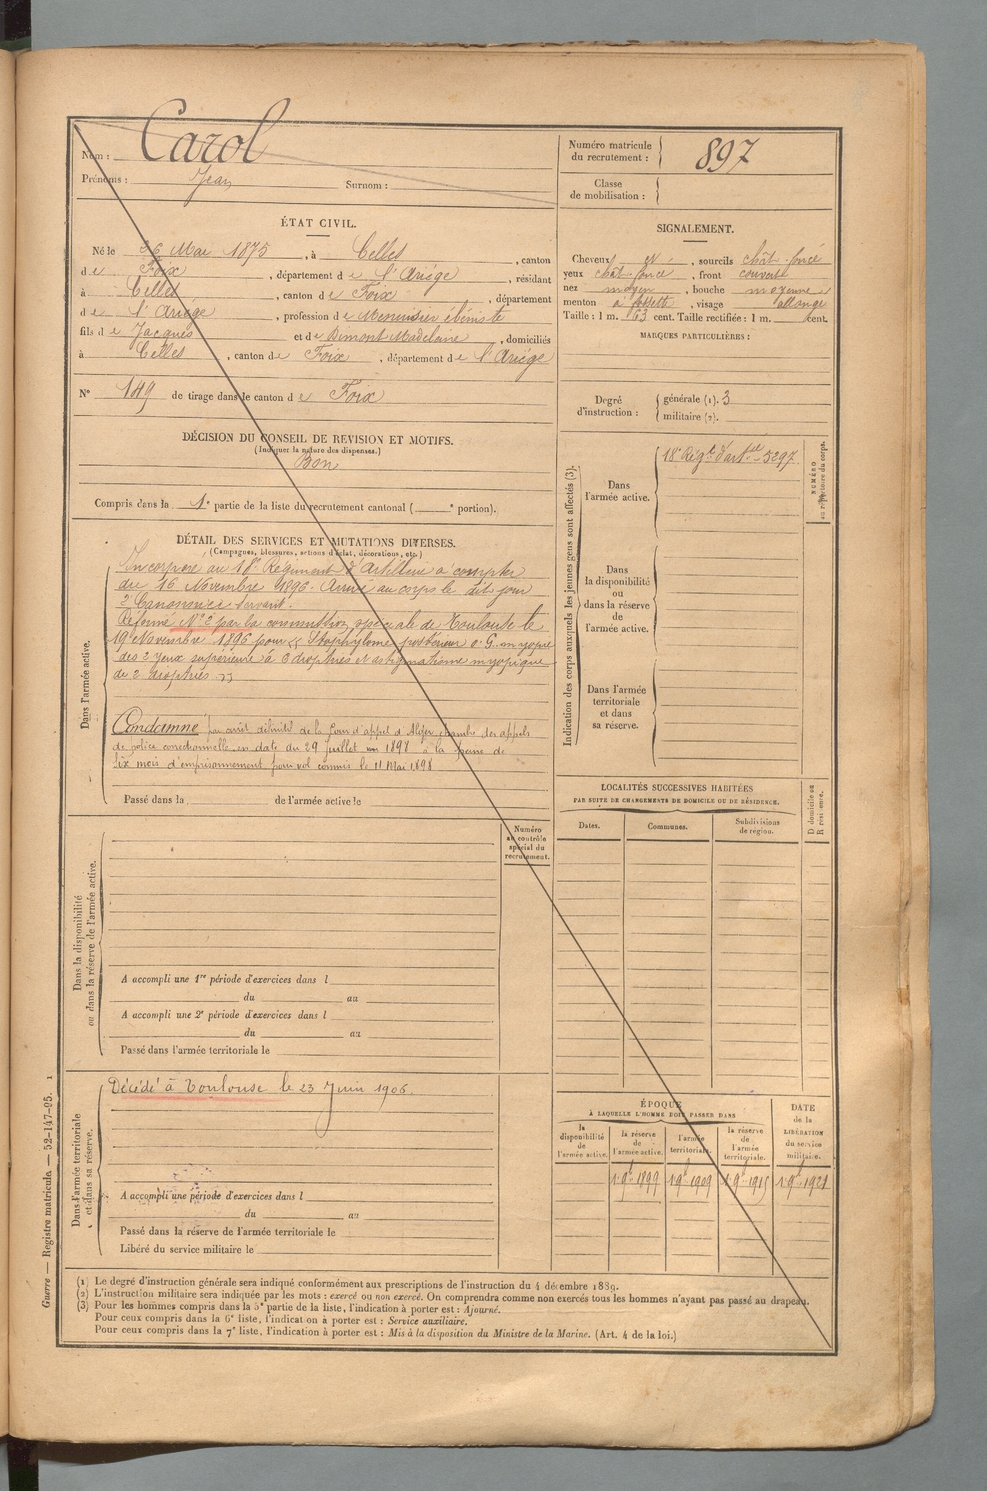 Nom : Carol
Prénoms : Jean Surnom :
Numéro matricule du recrutement : 897
Classe de mobilisation :
ÉTAT CIVIL.
Né le 26 Mai 1875, à Celles, canton
de Foix, département de l'Ariège, résidant
à Celles, canton de Foix, département
de l'Ariège, profession de Menuisier ébéniste
fils de Jacques et de Madelaine, domiciliés
à Celles, canton de Foix, département de l'Ariège
N° 149 de tirage dans le canton de Foix
DÉCISION DU CONSEIL DE REVISION ET MOTIFS.
(Indiquer la nature des dispenses.)
Bon
Compris dans la 1e partie de la liste du recrutement cantonal ( e portion).
SIGNALEMENT.
Cheveux et, sourcils chât. foncé
yeux chât. foncé, front couvert
nez moyen, bouche moyenne
menton à fossette, visage allongé
Taille : 1 m. 63 cent. Taille rectifiée : 1 m. cent.
MARQUES PARTICULIÈRES :
Degré d'instruction : générale (1). 3
militaire (2).
DÉTAIL DES SERVICES ET MUTATIONS DIVERSES.
(Campagnes, blessures, actions d'éclat, décorations, etc.)
Dans l'armée active.
Incorporé au 18e Régiment d'Artillerie à compter
du 16 Novembre 1896. Arrivé au corps le dit jour
2e Canonnier servant.
Réformé N° 2 par la commission spéciale de Toulouse le
19 Novembre 1896 pour "Staphylome postérieur O. G. myopie
des 2 yeux supérieure à 6 dioptries et astigmatisme myopique
de 2 dioptries"
Condamné par arrêt définitif de la Cour d'appel d'Alger, chambre des appels
de police correctionnelle, en date du 29 juillet 1898 à la peine de
Six mois d'emprisonnement pour vol commis le 11 Mai 1898
Passé dans la de l'armée active le
Indication des corps auxquels les jeunes gens sont affectés (3).
Dans l'armée active.
18e Régt d'artie 5297
NUMÉRO au répertoire du corps.
Dans la disponibilité ou dans la réserve de l'armée active.
Dans l'armée territoriale et dans sa réserve.
LOCALITÉS SUCCESSIVES HABITÉES
PAR SUITE DE CHANGEMENTS DE DOMICILE OU DE RÉSIDENCE.
Dates. Communes. Subdivisions de région.
D domicile ou R résidence.
Numéro au contrôle spécial du recrutement.
Dans la disponibilité ou dans la réserve de l'armée active.
A accompli une 1re période d'exercices dans l
du au
A accompli une 2e période d'exercices dans l
du au
Passé dans l'armée territoriale le
Dans l'armée territoriale et dans sa réserve.
Décédé à Toulouse le 23 Juin 1906.
A accompli une période d'exercices dans l
du au
Passé dans la réserve de l'armée territoriale le
Libéré du service militaire le
ÉPOQUE
À LAQUELLE L'HOMME DOIT PASSER DANS
la disponibilité de l'armée active.
la réserve de l'armée active.
l'armée territoriale.
la réserve de l'armée territoriale.
DATE de la LIBÉRATION du service militaire.
1 9bre 1899 1 9bre 1909 1 9bre 1915 1 9bre 1921
(1) Le degré d'instruction générale sera indiqué conformément aux prescriptions de l'instruction du 4 décembre 1889.
(2) L'instruction militaire sera indiquée par les mots : exercé ou non exercé. On comprendra comme non exercés tous les hommes n'ayant pas passé au drapeau.
(3) Pour les hommes compris dans la 5e partie de la liste, l'indication à porter est : Ajourné.
Pour ceux compris dans la 6e liste, l'indication à porter est : Service auxiliaire.
Pour ceux compris dans la 7e liste, l'indication à porter est : Mis à la disposition du Ministre de la Marine. (Art. 4 de la loi.)
Guerre — Registre matricule. — 52-147-95. 1